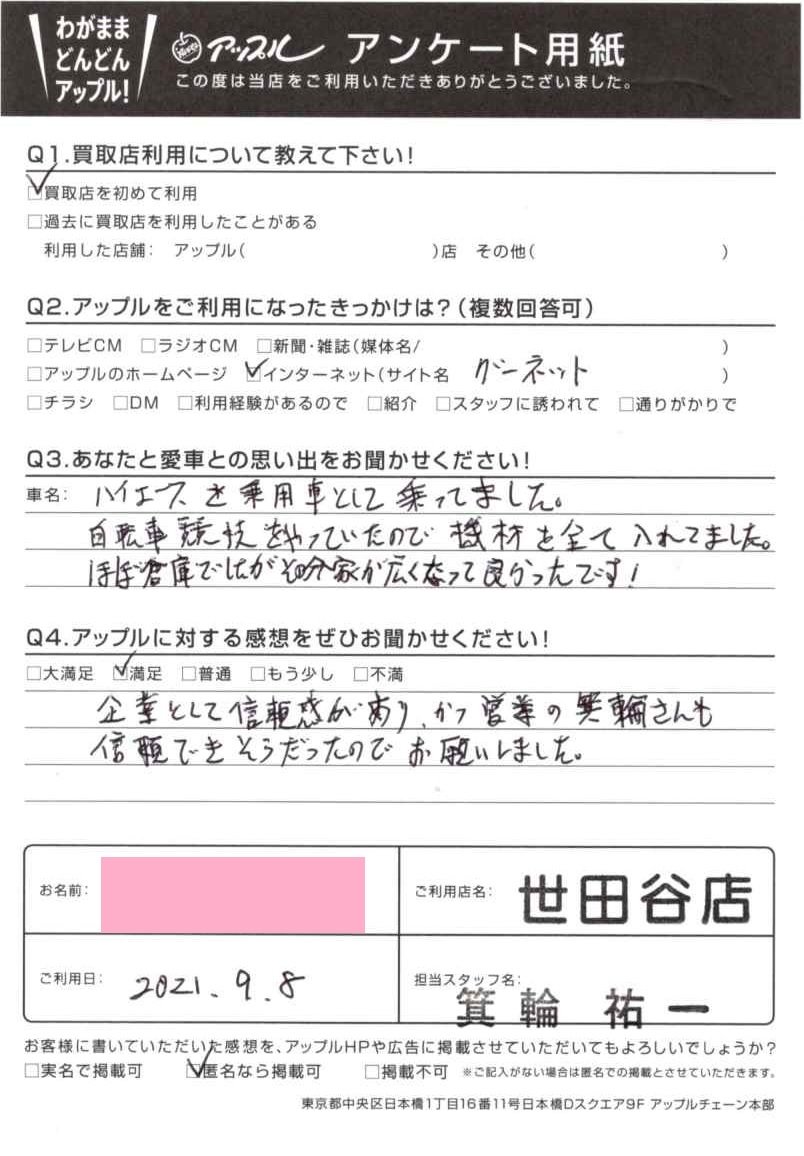 わがまま
どんどん
アップル!
アップル アンケート用紙
この度は当店をご利用いただきありがとうございました。
Q1.買取店利用について教えて下さい!
☑買取店を初めて利用
□過去に買取店を利用したことがある
利用した店舗: アップル( )店 その他( )
Q2.アップルをご利用になったきっかけは?(複数回答可)
□テレビCM □ラジオCM □新聞・雑誌(媒体名/ )
□アップルのホームページ ☑インターネット(サイト名 グーネット )
□チラシ □DM □利用経験があるので □紹介 □スタッフに誘われて □通りがかりで
Q3.あなたと愛車との思い出をお聞かせください!
車名: ハイエースを乗用車として乗ってました。
自転車競技をやっていたので機材を全て入れてました。
ほぼ倉庫でしたがその分家が広くなって良かったです!
Q4.アップルに対する感想をぜひお聞かせください!
□大満足 ☑満足 □普通 □もう少し □不満
企業として信頼感があり、かつ営業の箕輪さんも
信頼できそうだったのでお願いしました。
お名前:
ご利用店名: 世田谷店
ご利用日: 2021.9.8
担当スタッフ名: 箕輪 祐一
お客様に書いていただいた感想を、アップルHPや広告に掲載させていただいてもよろしいでしょうか?
□実名で掲載可 ☑匿名なら掲載可 □掲載不可 ※ご記入がない場合は匿名での掲載とさせていただきます。
東京都中央区日本橋1丁目16番11号日本橋Dスクエア9F アップルチェーン本部